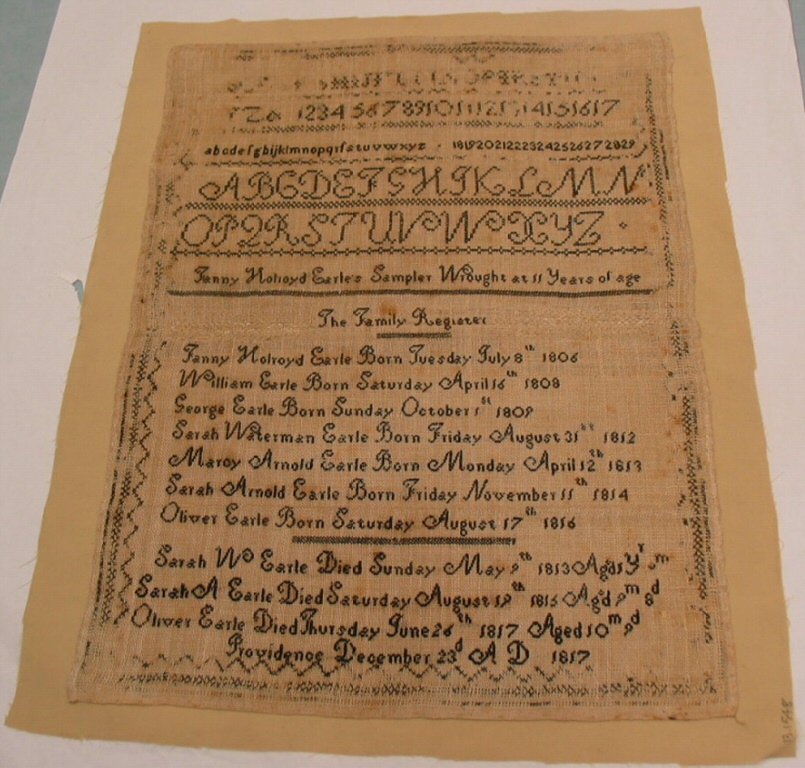 Z & 1234567891011121314151617
abcdefghijklmnopqrſstuvwxyz 181920212223242526272829
ABCDEFGHIKLMN
OPQRSTUVWXYZ
Fanny Holroyd Earle's Sampler Wrought at 11 Years of age
The Family Register
Fanny Holroyd Earle Born Tuesday July 8th 1806
William Earle Born Saturday April 16th 1808
George Earle Born Sunday October 1st 1809
Sarah Waterman Earle Born Friday August 31st 1812
Marcy Arnold Earle Born Monday April 12th 1813
Sarah Arnold Earle Born Friday November 11th 1814
Oliver Earle Born Saturday August 17th 1816
Sarah W Earle Died Sunday May 9th 1813 Agd 1y m
Sarah A Earle Died Saturday August 19th 1815 Agd 9m 8d
Oliver Earle Died Thursday June 26th 1817 Aged 10m 9d
Providence December 23d A D 1817